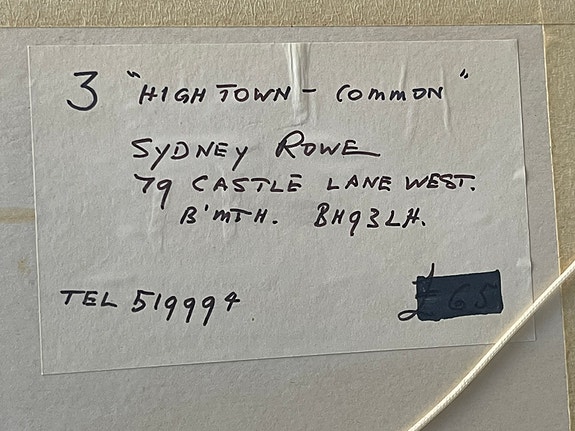 3 "HIGH TOWN - COMMON"
SYDNEY ROWE
79 CASTLE LANE WEST.
B'MTH. BH93LH.
TEL 519994 £65